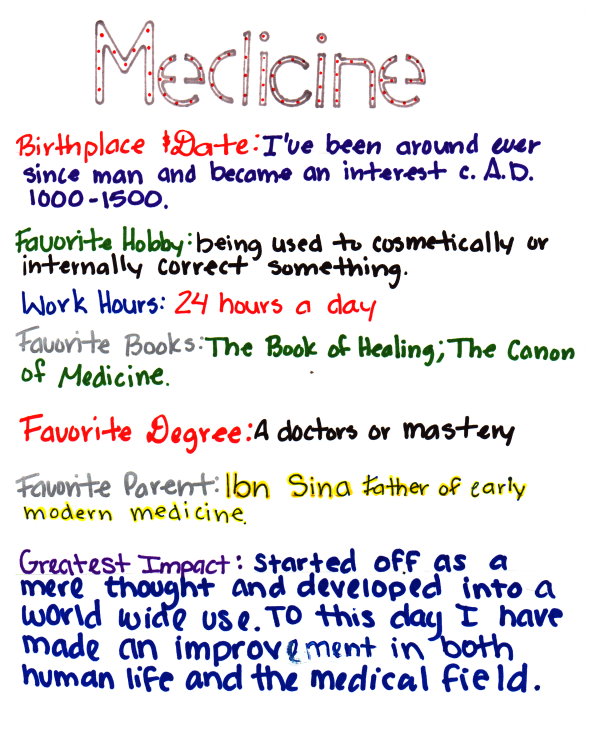 Medicine
Birthplace & Date: I've been around ever
since man and became an interest c. A.D.
1000-1500.
Favorite Hobby: being used to cosmetically or
internally correct something.
Work Hours: 24 hours a day
Favorite Books: The Book of Healing; The Canon
of Medicine.
Favorite Degree: A doctors or mastery
Favorite Parent: Ibn Sina Father of early
modern medicine.
Greatest Impact: Started off as a
mere thought and developed into a
world wide use. To this day I have
made an improvement in both
human life and the medical field.